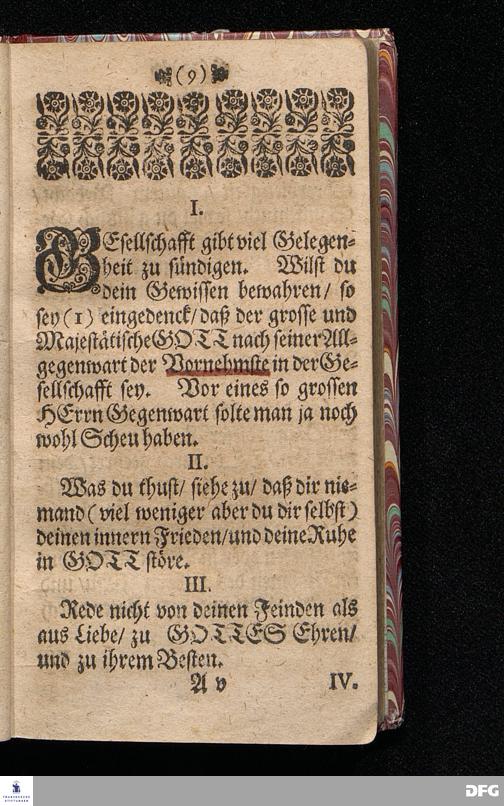 (9)
I.
GEsellschafft gibt viel Gelegen-
heit zu sündigen. Wilst du
dein Gewissen bewahren/ so
sey (1) eingedenck/ daß der grosse und
Majestätische GOTT nach seiner All-
gegenwart der Vornehmste in der Ge-
sellschafft sey. Vor eines so grossen
HErrn Gegenwart solte man ja noch
wohl Scheu haben.
II.
Was du thust/ siehe zu/ daß dir nie-
mand (viel weniger aber du dir selbst)
deinen innern Frieden/ und deine Ruhe
in GOTT störe.
III.
Rede nicht von deinen Feinden als
aus Liebe/ zu GOTTES Ehren/
und zu ihrem Besten.
A v IV.
FRANCKESCHE
STIFTUNGEN
DFG